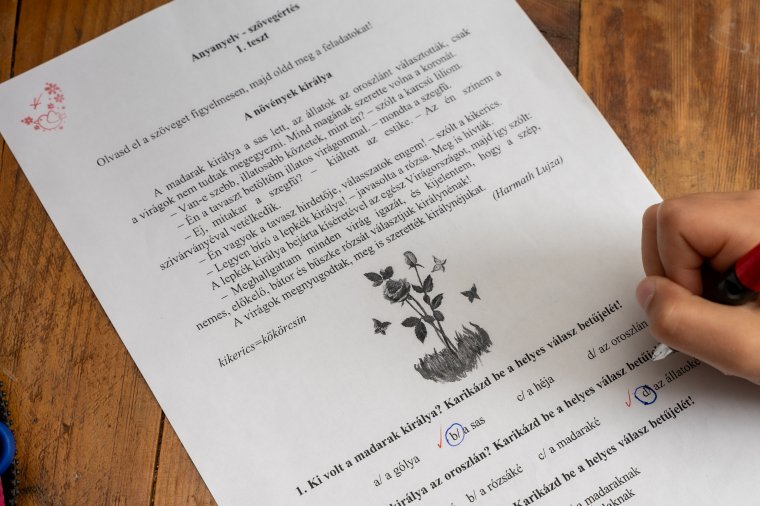 Anyanyelv - szövegértés
1. teszt
Olvasd el a szöveget figyelmesen, majd oldd meg a feladatokat!
A növények királya
A madarak királya a sas lett, az állatok az oroszlánt választották, csak
a virágok nem tudtak megegyezni. Mind magának szerette volna a koronát.
– Van-e szebb, illatosabb köztetek, mint én? – szólt a karcsú liliom.
– Én a tavaszt betöltöm illatos virágommal. – mondta a szegfű.
– Ej, mitakar a szegfű? – kiáltott az estike. – Az én színem a
szivárványéval vetélkedik.
– Én vagyok a tavasz hirdetője, válasszatok engem! – szólt a kikerics.
– Legyen bíró a lepkék királya! – javasolta a rózsa. Meg is hívták.
A lepkék királya bejárta kíséretével az egész Virágországot, majd így szólt:
– Meghallgattam minden virág igazát, és kijelentem, hogy a szép,
nemes, előkelő, bátor és büszke rózsát választjuk királynénak!
A virágok megnyugodtak, meg is szerették királynéjukat.
(Harmath Lujza)
kikerics=kökörcsin
1. Ki volt a madarak királya? Karikázd be a helyes válasz betűjelét!
a/ a gólya b/ a sas c/ a héja d/ az oroszlán
királya az oroszlán? Karikázd be a helyes válasz
b/ a rózsáké c/ a madaraké d/ az állatoké
Karikázd be a helyes válasz betűjelét!
a madaraknak